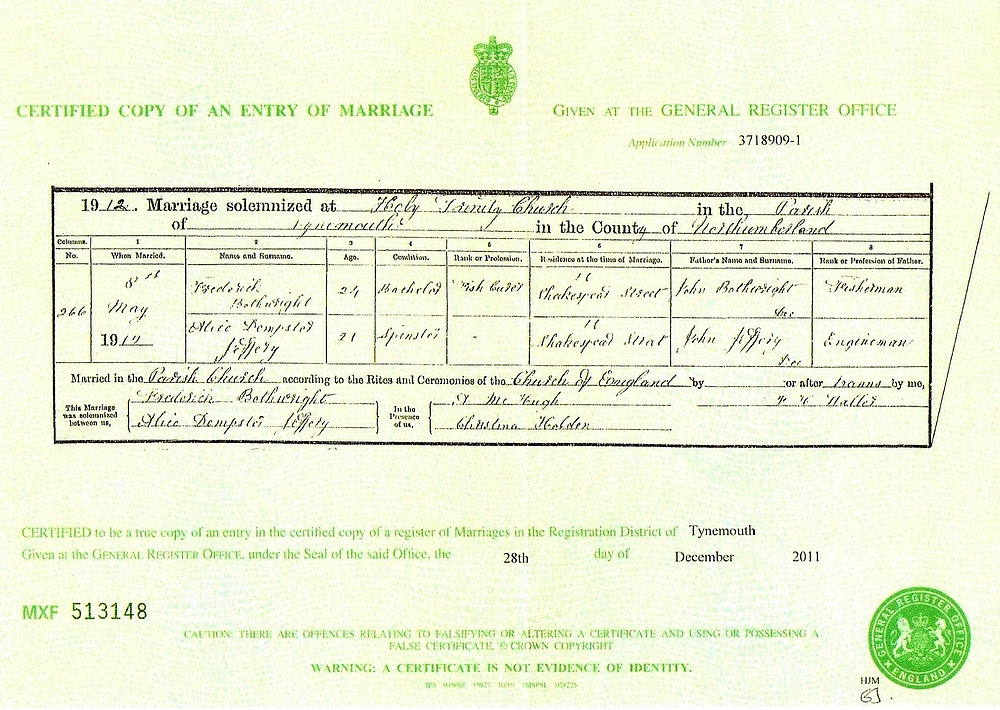 CERTIFIED COPY OF AN ENTRY OF MARRIAGE
GIVEN AT THE GENERAL REGISTER OFFICE
Application Number 3718909-1
1912. Marriage solemnized at Holy Trinity Church in the Parish
of Tynemouth in the County of Northumberland
Columns. 1 2 3 4 5 6 7 8
No. When Married. Name and Surname. Age. Condition. Rank or Profession. Residence at the time of Marriage. Father's Name and Surname. Rank or Profession of Father.
266 8th May 1912
Frederick Bothwright 24 Bachelor Fish Curer 11 Shakespear Street John Bothwright Dec Fisherman
Alice Dempster Jeffery 21 Spinster - 11 Shakespear Street John Jeffery Dec Engineman
Married in the Parish Church according to the Rites and Ceremonies of the Church of England by or after Banns by me,
This Marriage was solemnized between us, Frederick Bothwright In the Presence of us, Mc Hugh
Alice Dempster Jeffery Christina Holden
CERTIFIED to be a true copy of an entry in the certified copy of a register of Marriages in the Registration District of Tynemouth
Given at the GENERAL REGISTER OFFICE, under the Seal of the said Office, the 28th day of December 2011
MXF 513148
CAUTION: THERE ARE OFFENCES RELATING TO FALSIFYING OR ALTERING A CERTIFICATE AND USING OR POSSESSING A
FALSE CERTIFICATE. © CROWN COPYRIGHT
WARNING: A CERTIFICATE IS NOT EVIDENCE OF IDENTITY.
GENERAL REGISTER OFFICE
ENGLAND
HJM